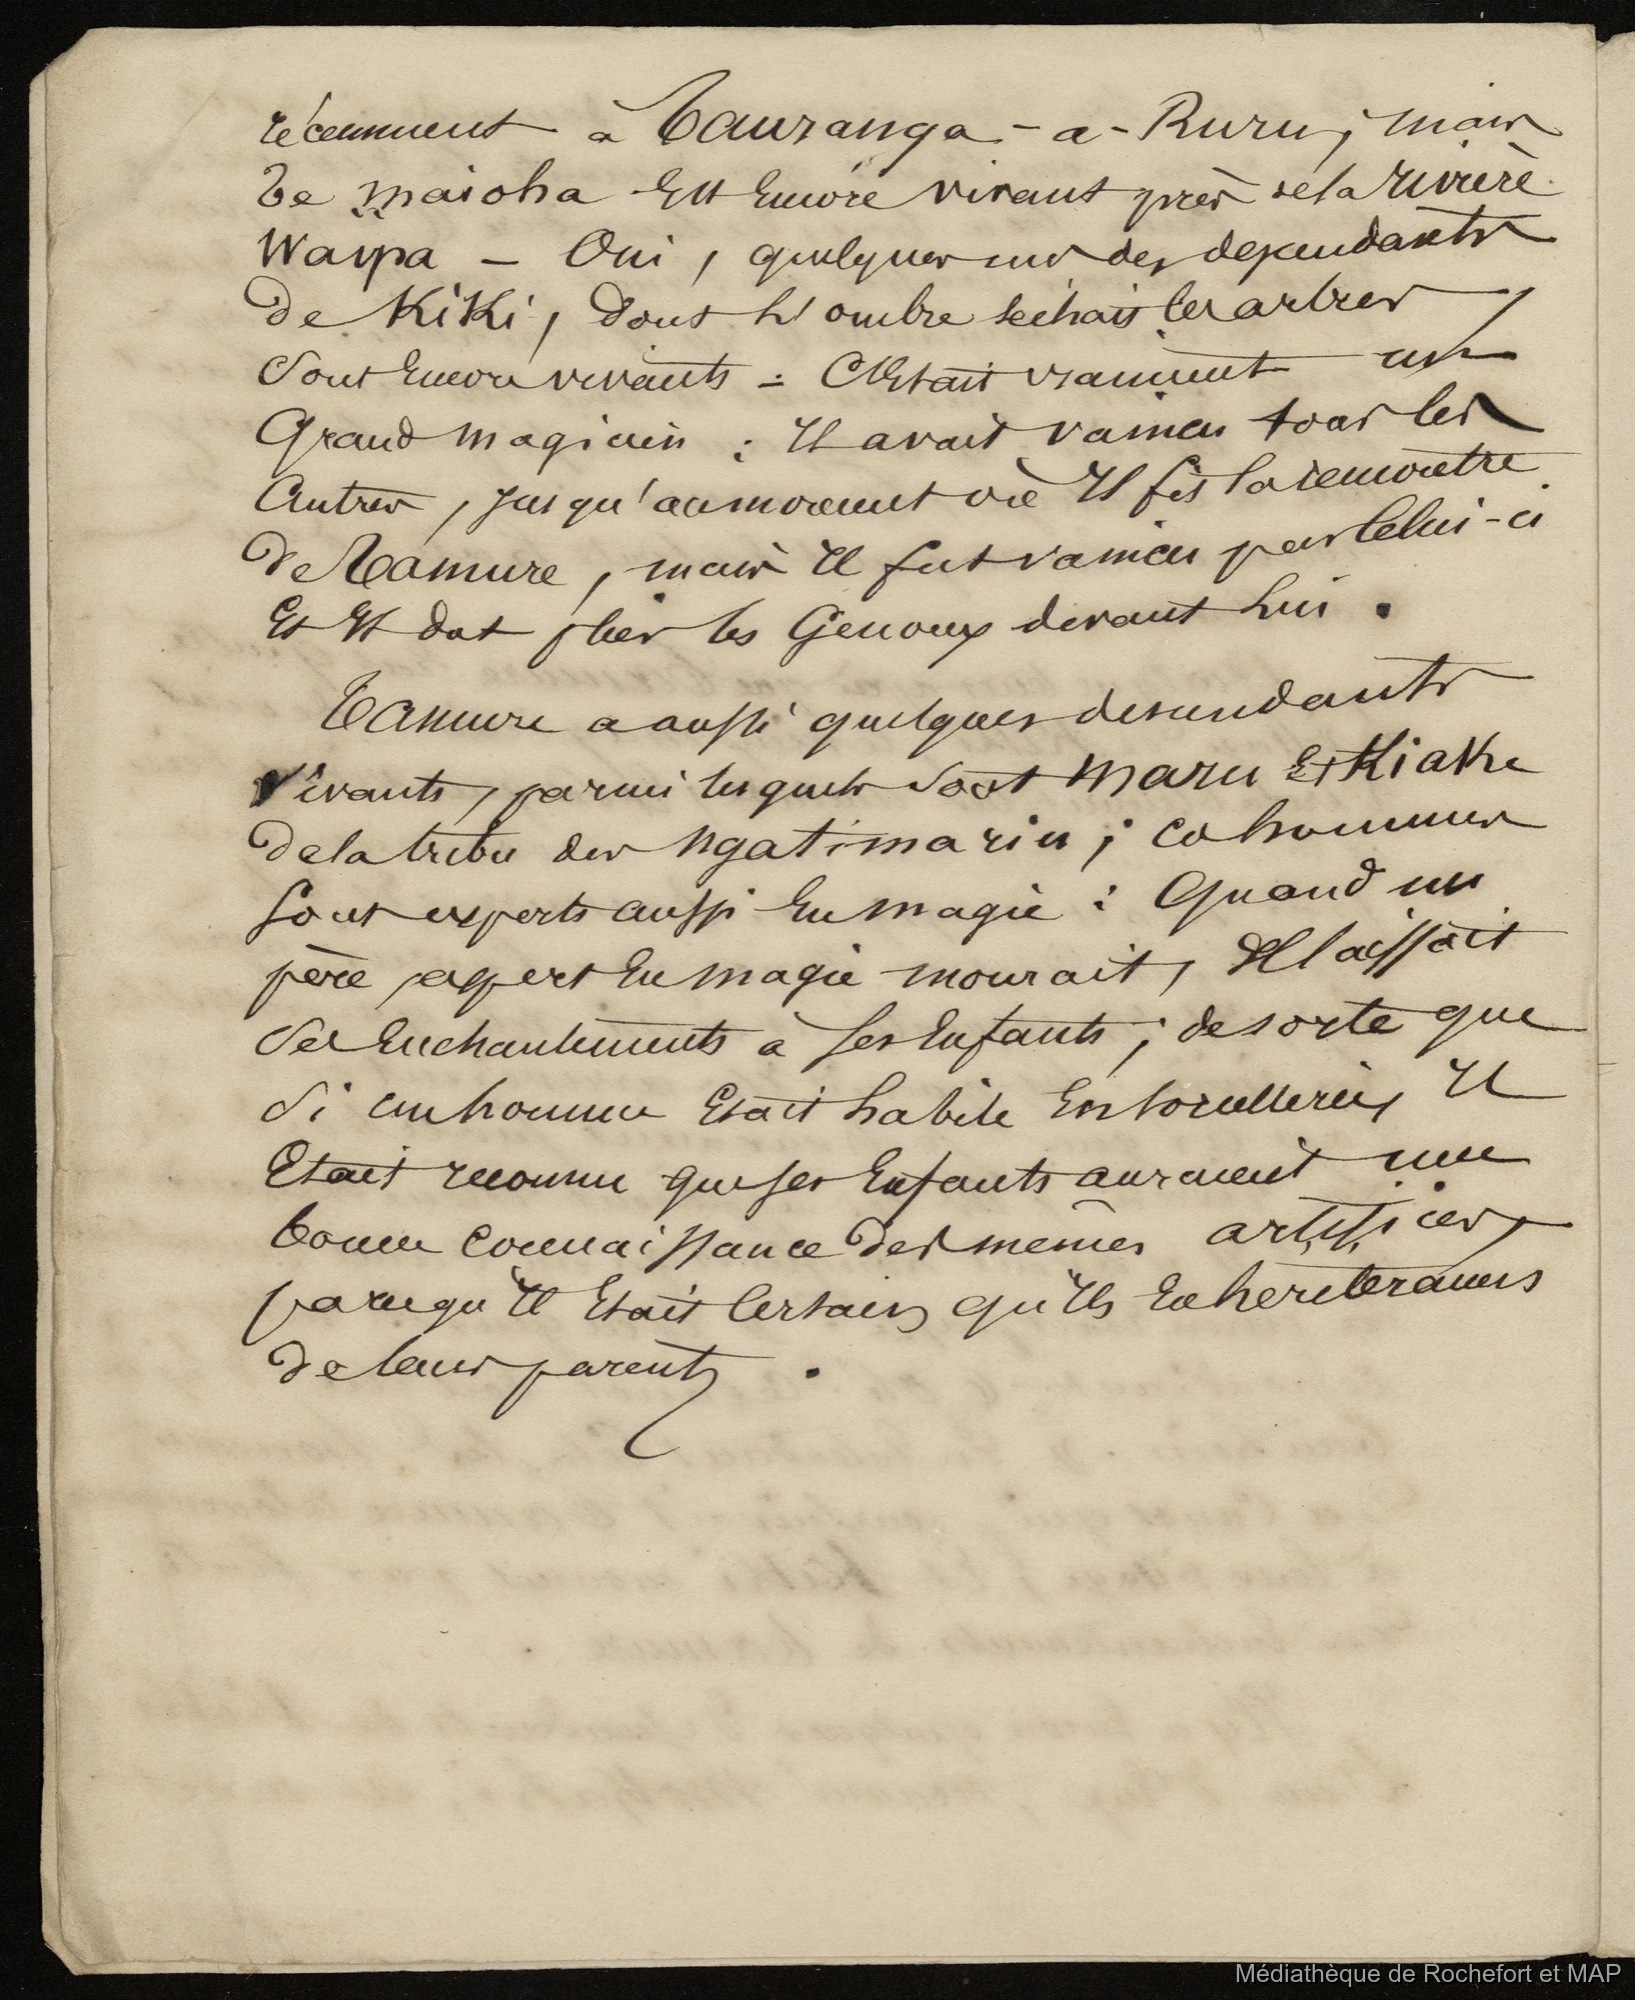 récemment à Tauranga-a-Ruru, mais
Te Maioha Est Encore vivant près de la rivière
Waipa – Oui, quelques uns des descendants
de KiKi, dont l'ombre séchait les arbres,
sont Encore vivants – C'Etait vraiment un
Grand magicien ; Il avait vaincu tous les
Autres, jusqu'au moment où Il fit la rencontre
de Tamure, mais Il fut vaincu par Celui-ci
Et Il dut plier les Genoux devant Lui .
Tamure a aussi quelques descendants
Vivants, parmi lesquels sont Maru Et Kiake
de la tribu des Ngatimariu ; ces hommes
sont experts aussi En magie : Quand un
père, expert En magie mourait, Il laissait
ses Enchantements à ses Enfants ; de sorte que
si un homme Etait habile En sorcellerie, Il
Etait reconnu que ses Enfants auraient une
bonne connaissance des mêmes artifices,
parcequ'Il Etait Certain qu'Ils En hériteraient
de leurs parents .
Médiathèque de Rochefort et MAP